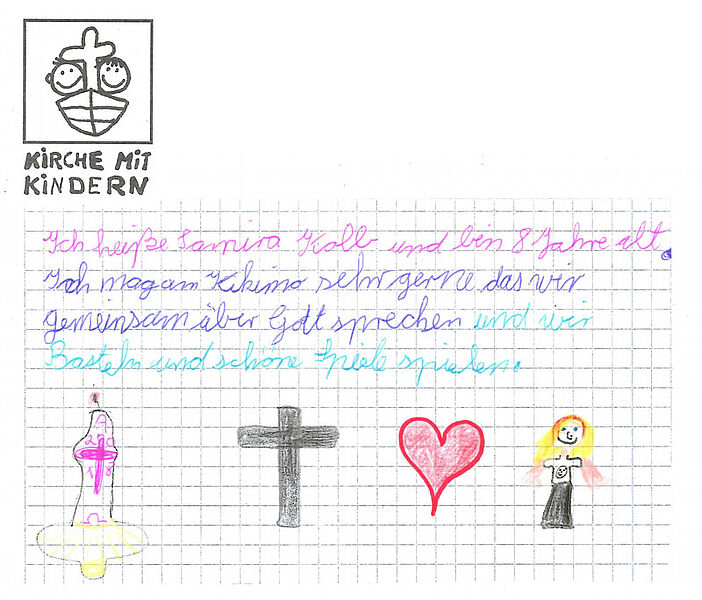 KiRCHE MiT
KiNDERN
Ich heiße Samira Kolb und bin 8 Jahre alt.
Ich mag am Kikimo sehr gerne das wir
gemeinsam über Gott sprechen und wir
Basteln und schöne Spiele spielen.
A
20
18
Ω